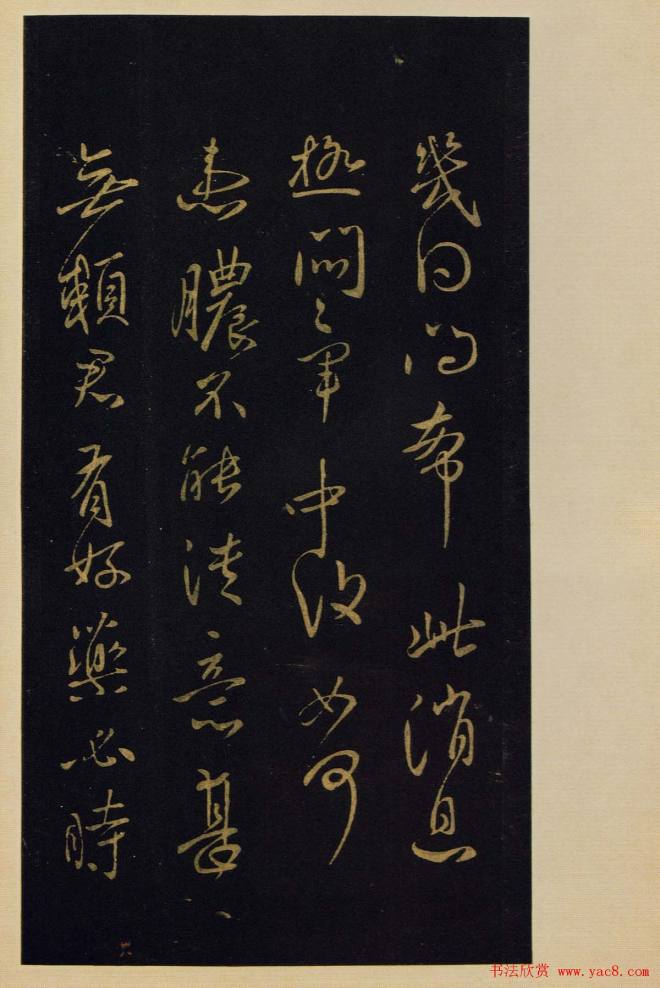 幾日希此消息
極悶〻軍中如何
患膿不能潰意甚
無賴君有好藥必時
书法欣赏 www.yac8.com